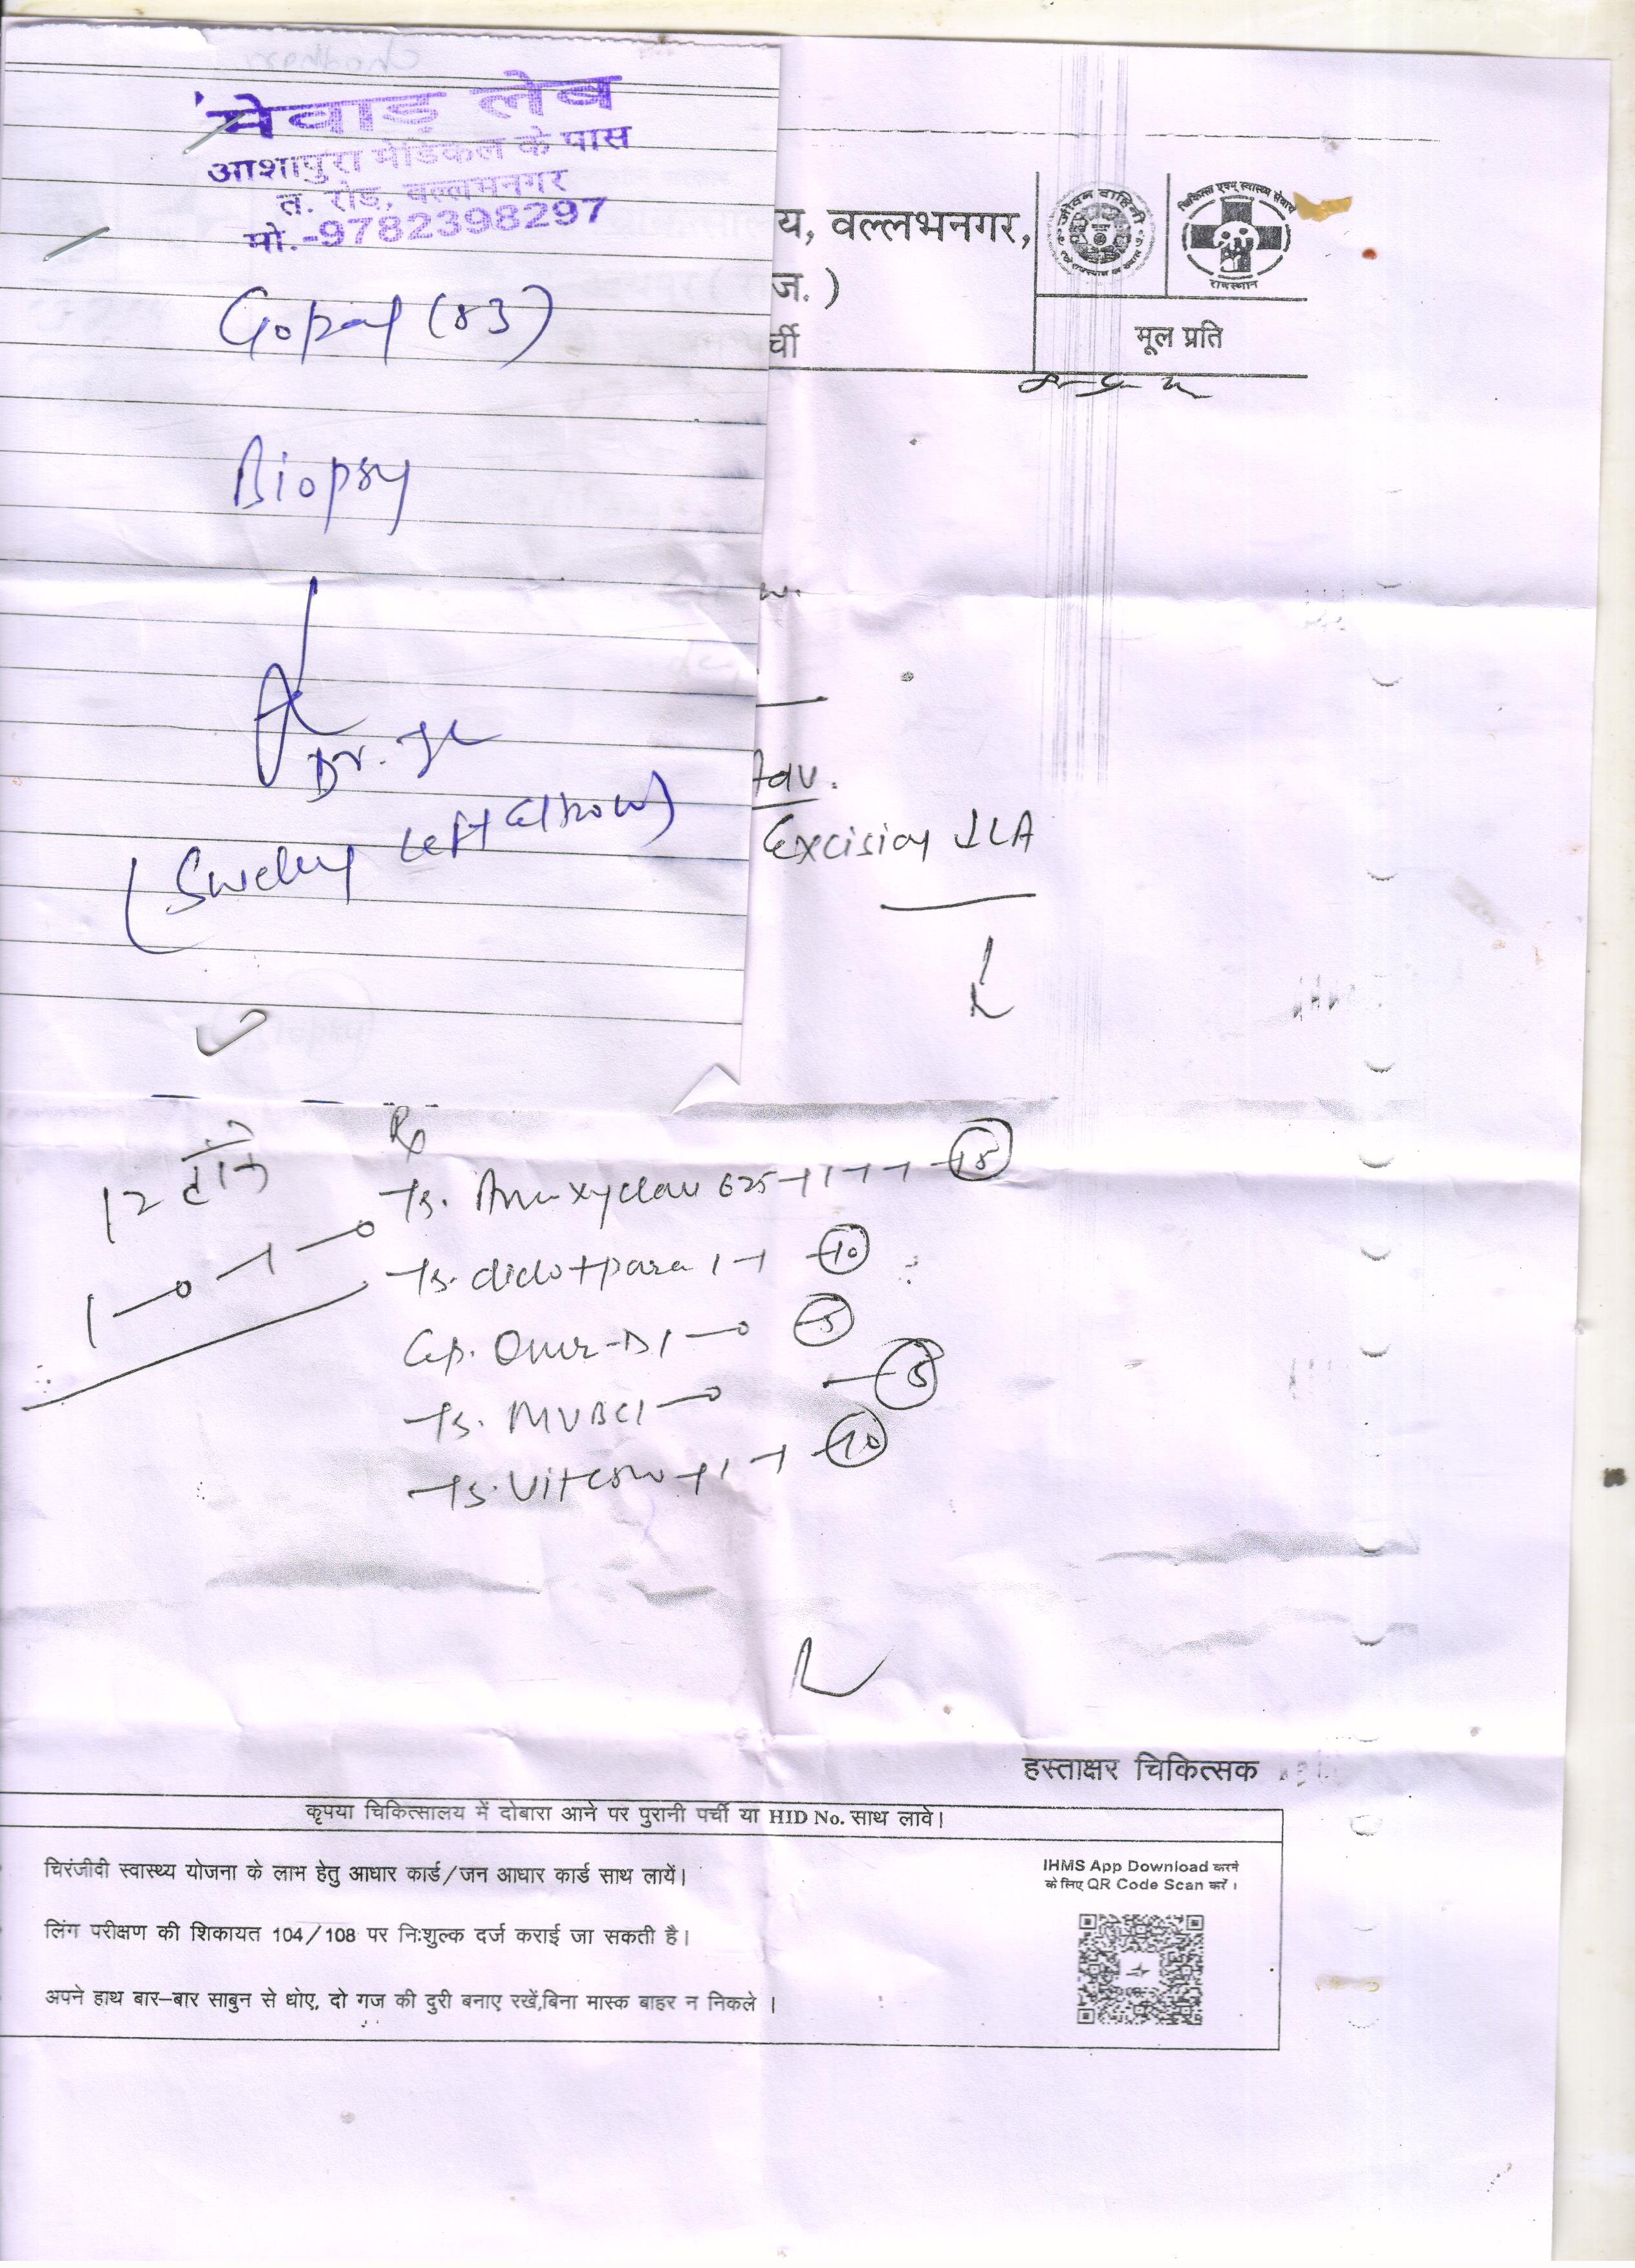 मेवाड़ लेब
आशापुरा मेडिकल के पास
त. रोड, वल्लभनगर
मो.-9782398297
य, वल्लभनगर,
ज. )
र्ची
जीवन वाहिनी
चिकित्सा एवम् स्वास्थ्य सेवाएं
राजस्थान
मूल प्रति
Gopal (83)
Biopsy
Dr.
(Swelling Left Elbow)
Adv.
Excision LA
Rx
12 टांके
Tb. Amoxyclav 625 1-1-1 15
Tb. diclo+para 1-1 10
Cap. Omez-D 1-0 5
Tb. MVBC 1-0 5
Tb. Vitcow 1-1 10
1-0-1-0
हस्ताक्षर चिकित्सक
कृपया चिकित्सालय में दोबारा आने पर पुरानी पर्ची या HID No. साथ लावे।
चिरंजीवी स्वास्थ्य योजना के लाभ हेतु आधार कार्ड/जन आधार कार्ड साथ लायें।
लिंग परीक्षण की शिकायत 104/108 पर निःशुल्क दर्ज कराई जा सकती है।
अपने हाथ बार–बार साबुन से धोए, दो गज की दुरी बनाए रखें,बिना मास्क बाहर न निकले ।
IHMS App Download करने
के लिए QR Code Scan करें ।